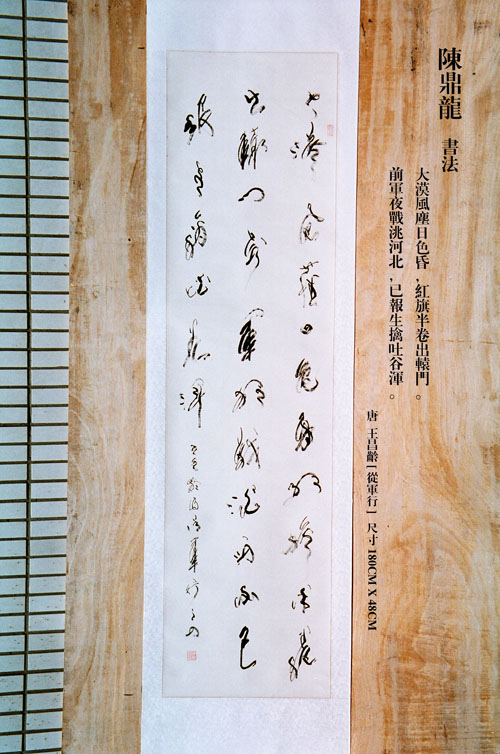 陳鼎龍 書法
大漠風塵日色昏,紅旗半卷出轅門。
前軍夜戰洮河北,已報生擒吐谷渾。
唐 王昌齡[從軍行] 尺寸180CM X 48CM
大漠風塵日色昏紅旗半卷
出轅門前軍夜戰洮河北已
報生擒吐谷渾 王昌齡詩從軍行